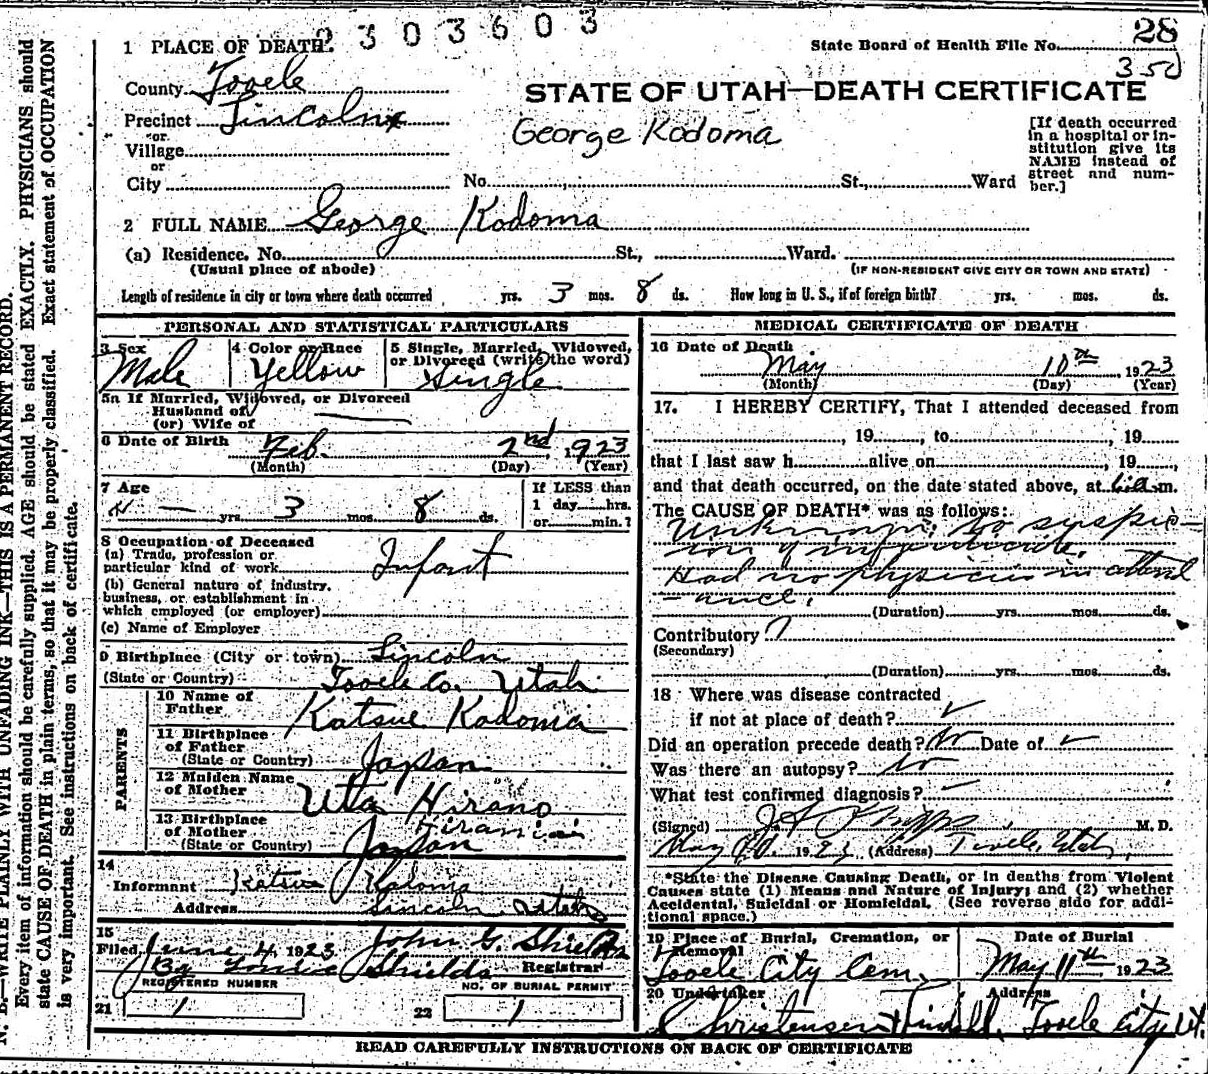 2303603
28
350
1 PLACE OF DEATH.
State Board of Health File No.
County Tooele
STATE OF UTAH—DEATH CERTIFICATE
Precinct Lincoln
or
George Kodoma
[If death occurred in a hospital or institution give its NAME instead of street and number.]
Village
or
City No. , St., Ward
2 FULL NAME George Kodoma
(a) Residence. No. St., Ward.
(Usual place of abode) (IF NON-RESIDENT GIVE CITY OR TOWN AND STATE)
Length of residence in city or town where death occurred yrs. 3 mos. 8 ds. How long in U. S., if of foreign birth? yrs. mos. ds.
PERSONAL AND STATISTICAL PARTICULARS
3 Sex Male
4 Color or Race Yellow
5 Single, Married, Widowed, or Divorced (write the word) Single
5a If Married, Widowed, or Divorced
Husband of
(or) Wife of
6 Date of Birth Feb. 2nd, 1923
(Month) (Day) (Year)
7 Age — yrs. 3 mos. 8 ds.
If LESS than
1 day hrs.
or min.?
8 Occupation of Deceased
(a) Trade, profession or
particular kind of work Infant
(b) General nature of industry.
business, or establishment in
which employed (or employer)
(c) Name of Employer
9 Birthplace (City or town) Lincoln
(State or Country) Tooele Co. Utah
PARENTS
10 Name of
Father Katsue Kodoma
11 Birthplace
of Father
(State or Country) Japan
12 Maiden Name
of Mother Uta Hirano
13 Birthplace
of Mother
(State or Country) Japan
14
Informant Kodoma
Address Lincoln Utah
15
Filed June 4, 1923 John G. Shields
By Shields Registrar
REGISTERED NUMBER NO. OF BURIAL PERMIT
21 1 22 1
MEDICAL CERTIFICATE OF DEATH
16 Date of Death
May 10th, 1923
(Month) (Day) (Year)
17. I HEREBY CERTIFY, That I attended deceased from
, 19 , to , 19
that I last saw h alive on , 19 ,
and that death occurred, on the date stated above, at m.
The CAUSE OF DEATH* was as follows:
Unknown: no suspic-
ion of infanticide.
Had no physician in attend
-ance.
(Duration) yrs. mos. ds.
Contributory ?
(Secondary)
(Duration) yrs. mos. ds.
18 Where was disease contracted
if not at place of death?
Did an operation precede death? No Date of
Was there an autopsy? No
What test confirmed diagnosis? —
(Signed) J A Phipps, M. D.
May 1923 (Address) Tooele, Utah,
*State the Disease Causing Death, or in deaths from Violent
Causes state (1) Means and Nature of Injury; and (2) whether
Accidental, Suicidal or Homicidal. (See reverse side for addi-
tional space.)
19 Place of Burial, Cremation, or
Removal
Tooele City Cem.
Date of Burial
May 11th 1923
20 Undertaker Address
Christensen Tooele City Ut.
READ CAREFULLY INSTRUCTIONS ON BACK OF CERTIFICATE
N. B.—WRITE PLAINLY WITH UNFADING INK—THIS IS A PERMANENT RECORD.
Every item of information should be carefully supplied. AGE should be stated EXACTLY. PHYSICIANS should
state CAUSE OF DEATH in plain terms, so that it may be properly classified. Exact statement of OCCUPATION
is very important. See instructions on back of certificate.